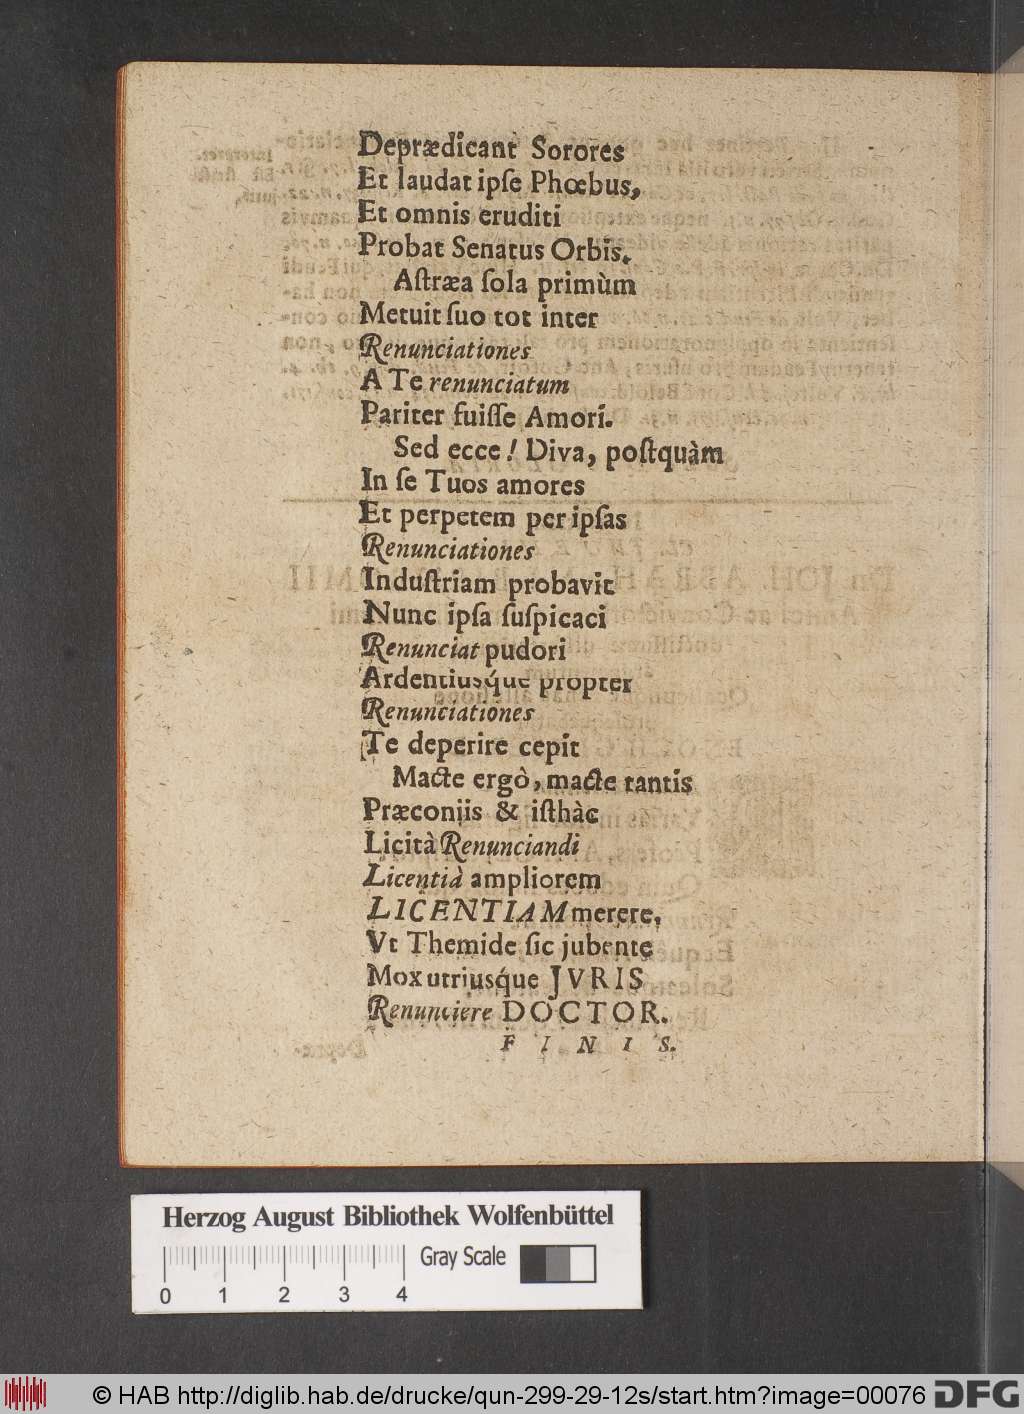 Deprædicant Sorores
Et laudat ipſe Phœbus,
Et omnis eruditi
Probat Senatus Orbis.
Aſtræa ſola primùm
Metuit ſuo tot inter
Renunciationes
A Te renunciatum
Pariter fuiſſe Amori.
Sed ecce! Diva, poſtquàm
In ſe Tuos amores
Et perpetem per ipſas
Renunciationes
Induſtriam probavit
Nunc ipſa ſuſpicaci
Renunciat pudori
Ardentiusq́ue propter
Renunciationes
Te deperire cepit
Macte ergò, macte tantis
Præconiis & iſthàc
Licità Renunciandi
Licentiâ ampliorem
LICENTIAM merere,
Vt Themide ſic jubente
Mox utriusq́ue JVRIS
Renunciere DOCTOR.
FINIS.
Herzog August Bibliothek Wolfenbüttel
Gray Scale
0 1 2 3 4
© HAB http://diglib.hab.de/drucke/qun-299-29-12s/start.htm?image=00076 DFG